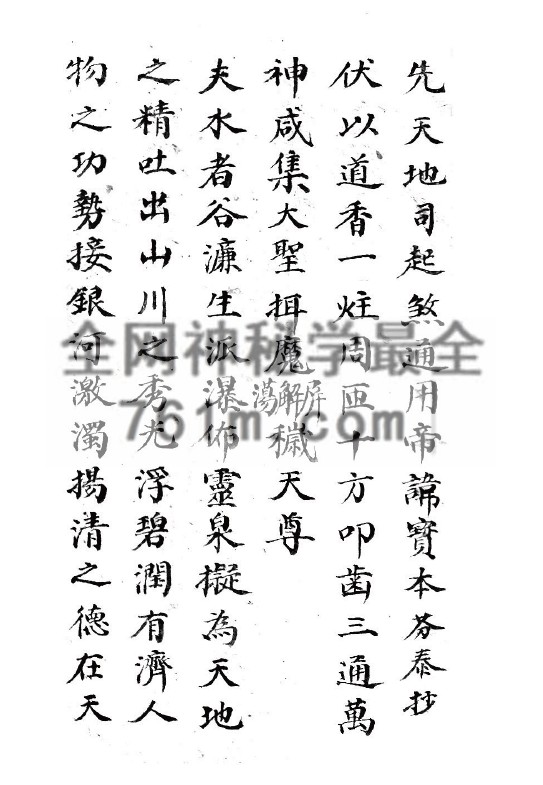 先天地司起煞通用帝諱寶本芬泰抄
伏以道香一炷周匝十方叩齒三通萬
神咸集大聖挕魔屏解蕩穢天尊
夫水者谷濂生派瀑佈靈泉擬為天地
之精吐出山川之秀光浮碧潤有濟人
物之功勢接銀河激濁揚清之德在天
全网神科学最全
761m.com